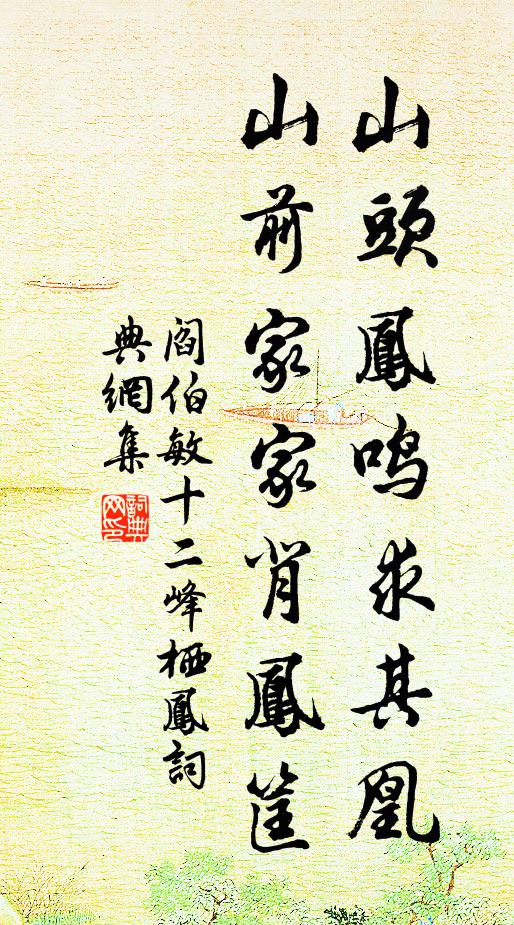 山頭鳳鳴求其凰
山前家家肖鳳筐
閻伯敏十二峰栖鳳詞
典網集
詞典
网印